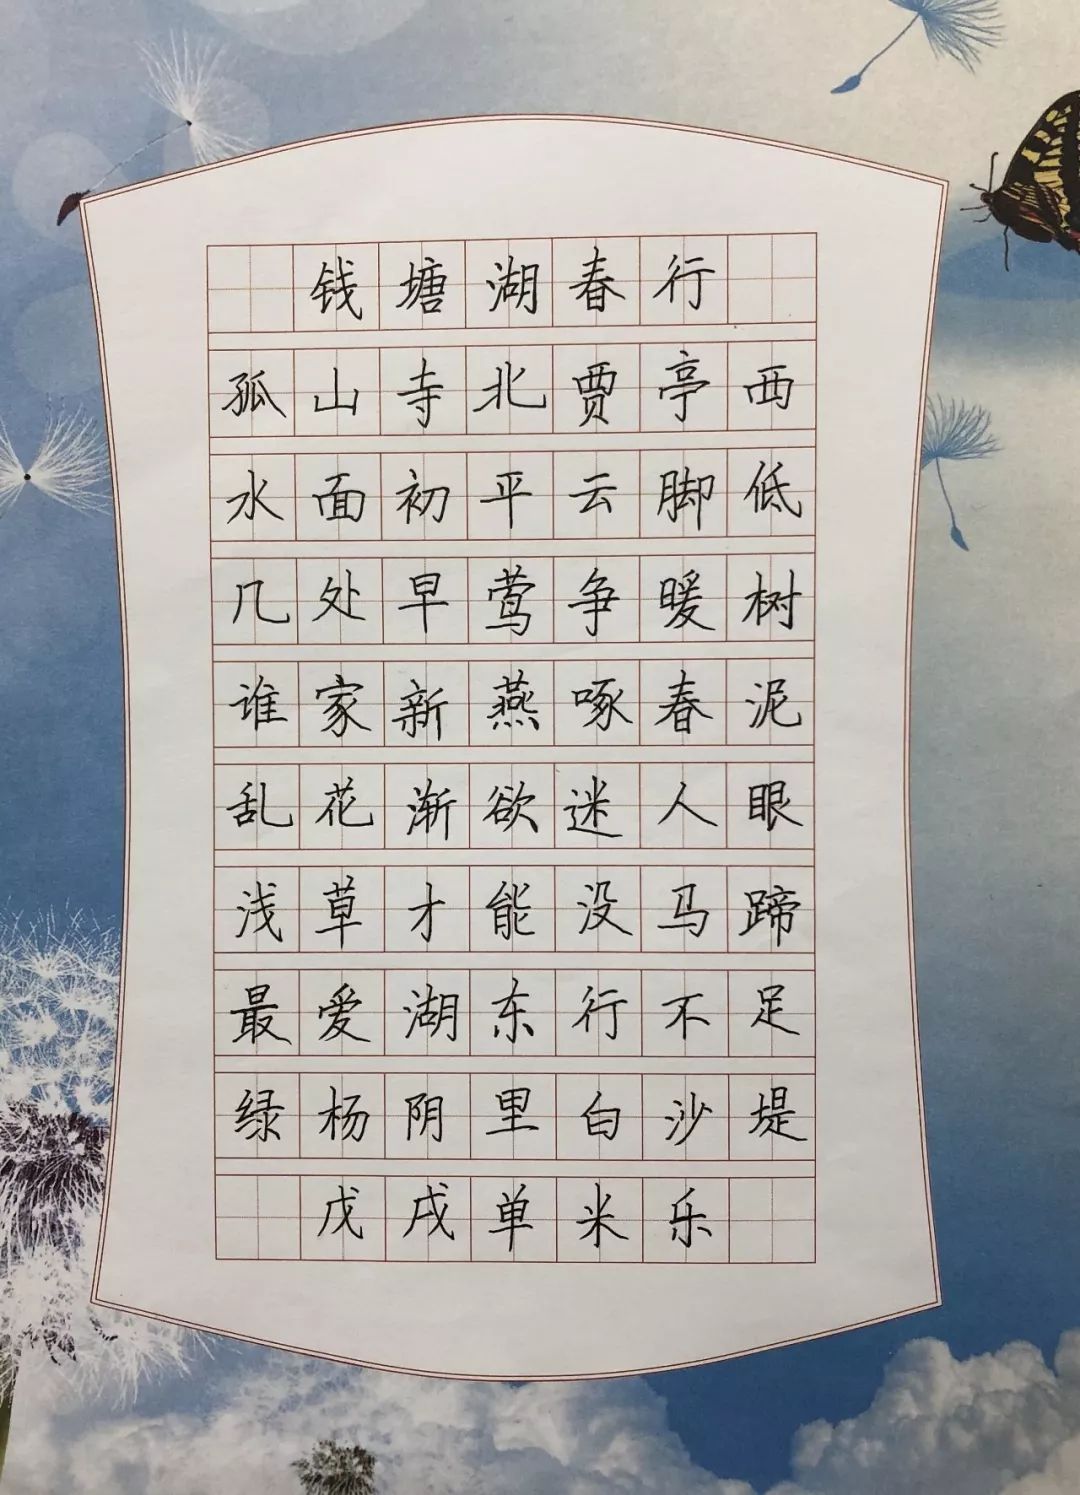 钱塘湖春行
孤山寺北贾亭西
水面初平云脚低
几处早莺争暖树
谁家新燕啄春泥
乱花渐欲迷人眼
浅草才能没马蹄
最爱湖东行不足
绿杨阴里白沙堤
戊戌单米乐